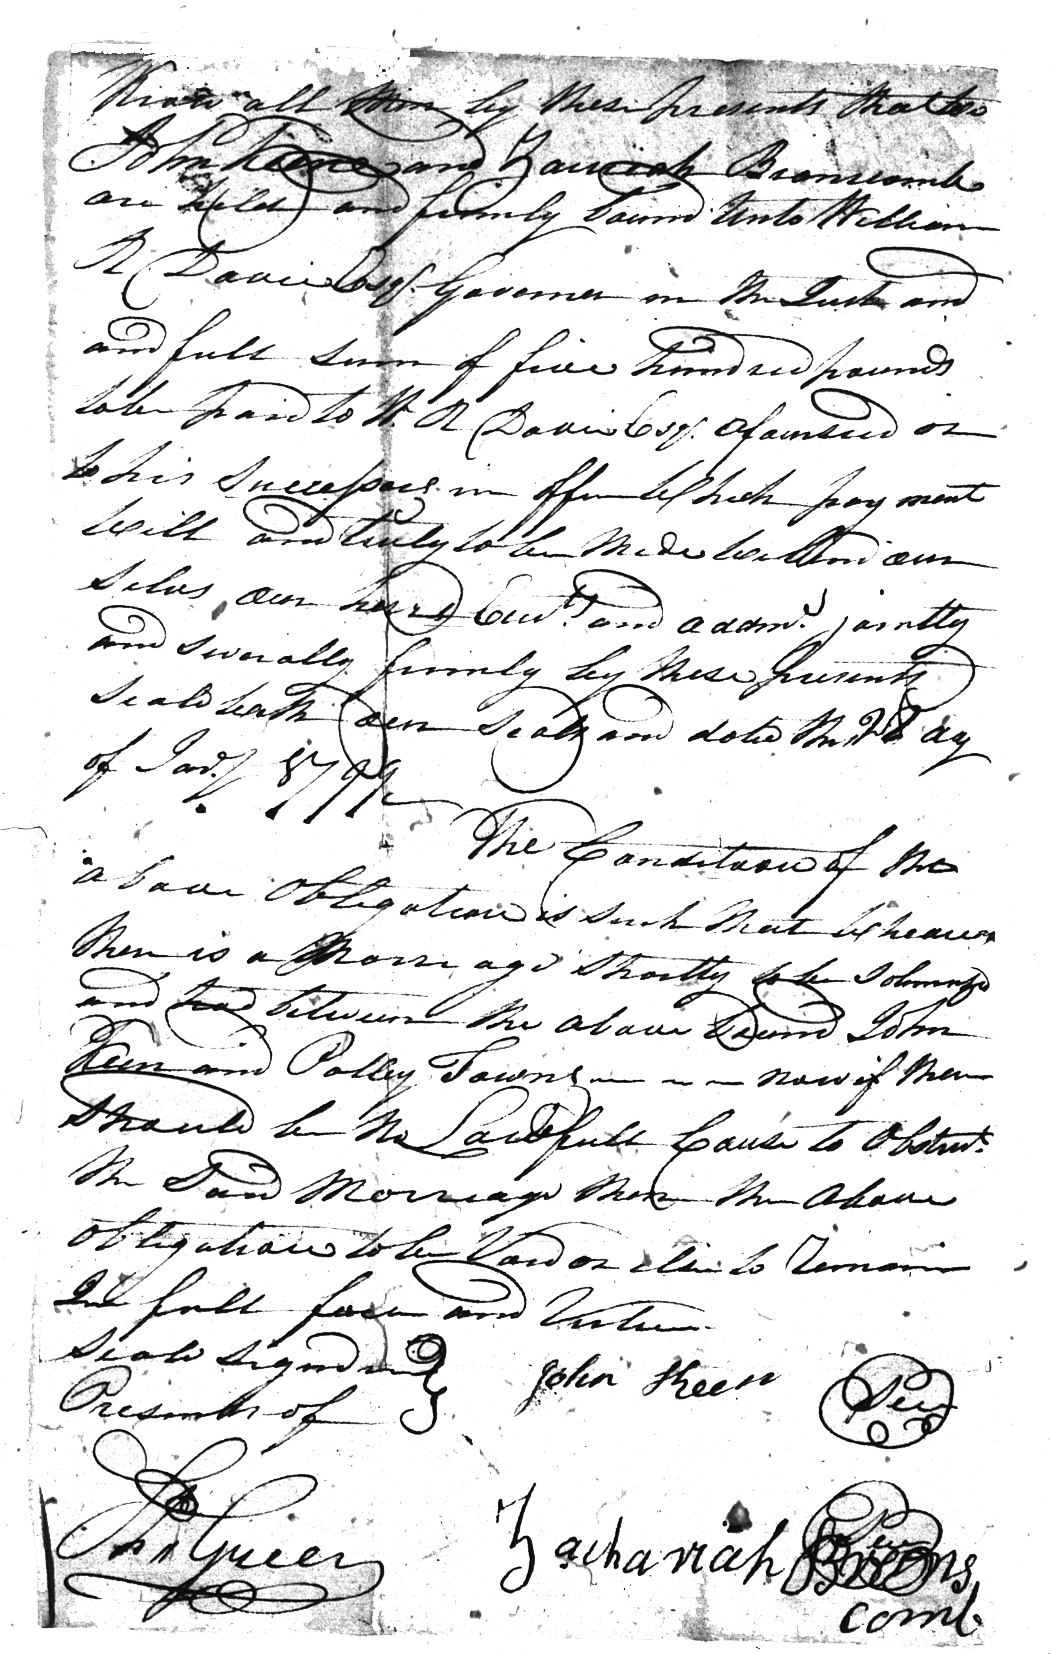 Know all Men by these presents that we
John Keen and Zacriah Branscomb
are Held and firmly bound unto William
R Davie Esqr. Governer in the Just and
and full sum of five hundred pounds
to be paid to W. R Davie Esqr. aforesaid or
to his Successors in office Which payment
well and truly to be Made we bind our
selves our heirs Exrs. and admr. jointly
and severally firmly by these presents
Seald with our Seals and dated this Day
of Jany. 1799
The Condition of the
above Obligation is such that Wheareas
there is a Marriage shortly to be solemnized
and had between the above bound John
Keen and Polley Towns now if there
should be no Lawfull Cause to Obstruct
the Said Marriage then the above
obligation to be Void or else to Remain
In full force and Virtue
Seald Signd in
Presents of
John Keen Seal
Jno Green
Zachariah Brans Seal
comb